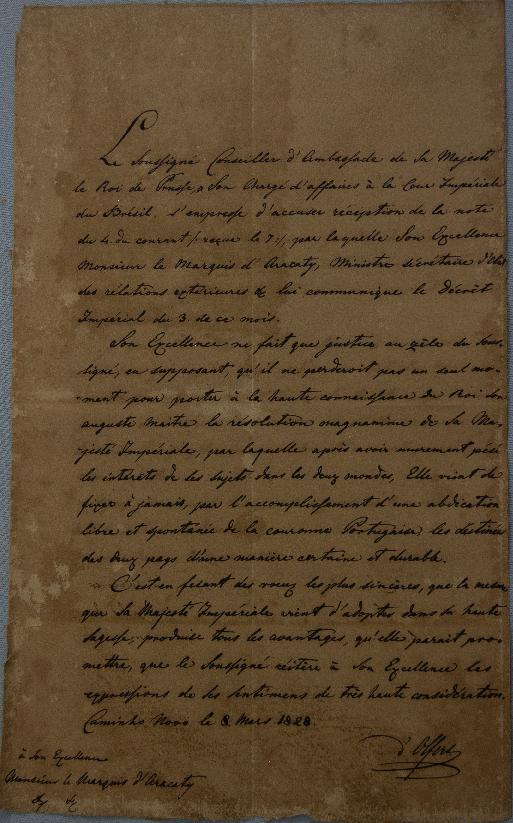 Le Soussigné Conseiller d'Ambassade de Sa Majesté
le Roi de Prusse, & Son Chargé d'affaires à la Cour Impériale
du Brésil, s'empresse d'accuser réception de la note
du 4. du courant /: reçue le 7:/, par laquelle Son Excellence
Monsieur le Marquis d'Aracaty, Ministre sécretaire d'Etat
des rélations extérieures & lui communique le Décrêt
Impérial du 3. de ce mois.
Son Excellence ne fait que justice au zèle du Sous-
signé, en supposant, qu'il ne perderoit pas un seul mo-
ment pour porter à la haute connaissance du Roi Son
auguste maitre la résolution magnanime de Sa Ma-
jesté Impériale, par laquelle après avoir murement pésé
les intérêts de ses sujets dans les deux mondes, Elle vient de
fixer à jamais, par l'accomplissement d'une abdication
libre et spontanée de la couronne Portugaise, les destinées
des deux pays d'une manière certaine et durable.
C'est en fesant des voeux les plus sincères, que la mesure
que Sa Majesté Impériale vient d'adopter dans Sa haute
sagesse, produise tous les avantages, qu'elle parait pro-
mettre, que le Soussigné réitère à Son Excellence les
expressions de ses sentimens de très haute considération.
Caminho Novo le 8 Mars 1828.
d'Olfers
à Son Excellence
Monsieur le Marquis d'Aracaty